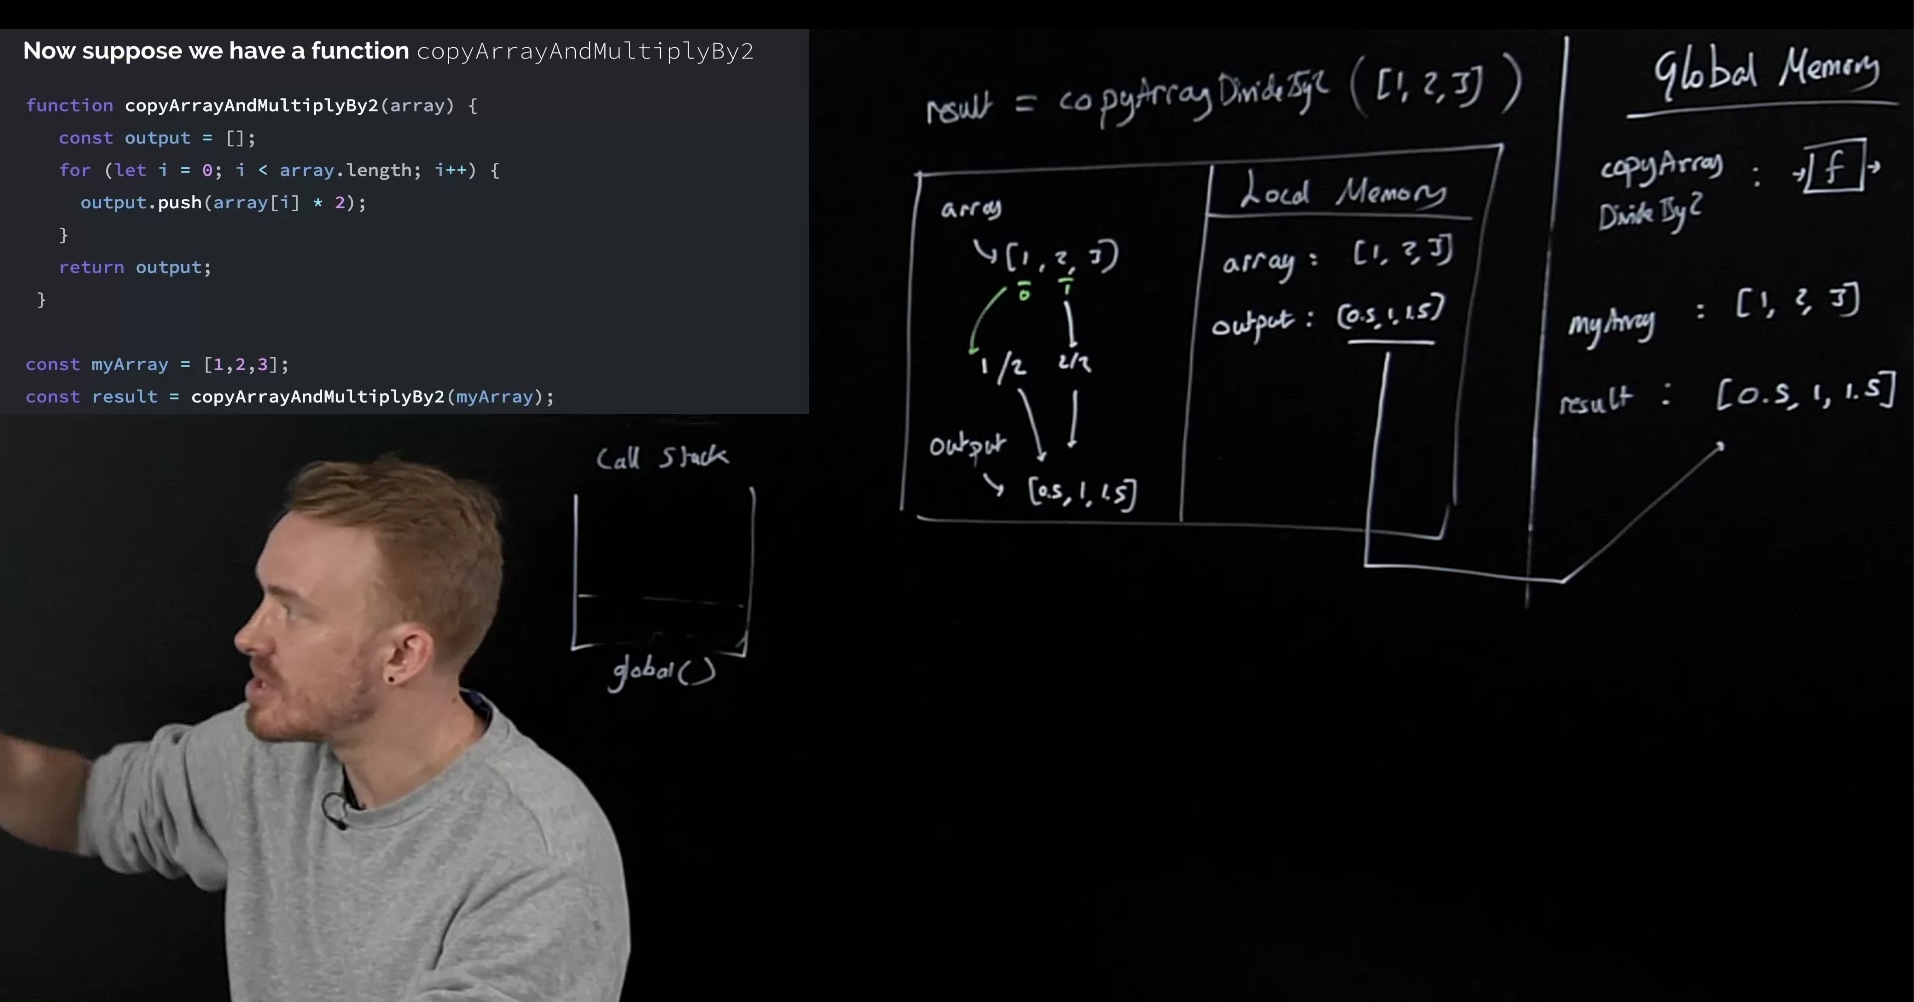 Now suppose we have a function copyArrayAndMultiplyBy2
function copyArrayAndMultiplyBy2(array) {
const output = [];
for (let i = 0; i < array.length; i++) {
output.push(array[i] * 2);
}
return output;
}
const myArray = [1,2,3];
const result = copyArrayAndMultiplyBy2(myArray);
Call Stack
global()
result = copyArrayDivideBy2 ([1, 2, 3])
array
[1, 2, 3]
0 1
1/2 2/2
output
[0.5, 1, 1.5]
Local Memory
array : [1, 2, 3]
output : [0.5, 1, 1.5]
Global Memory
copyArray
DivideBy2 : f
myArray : [1, 2, 3]
result : [0.5, 1, 1.5]